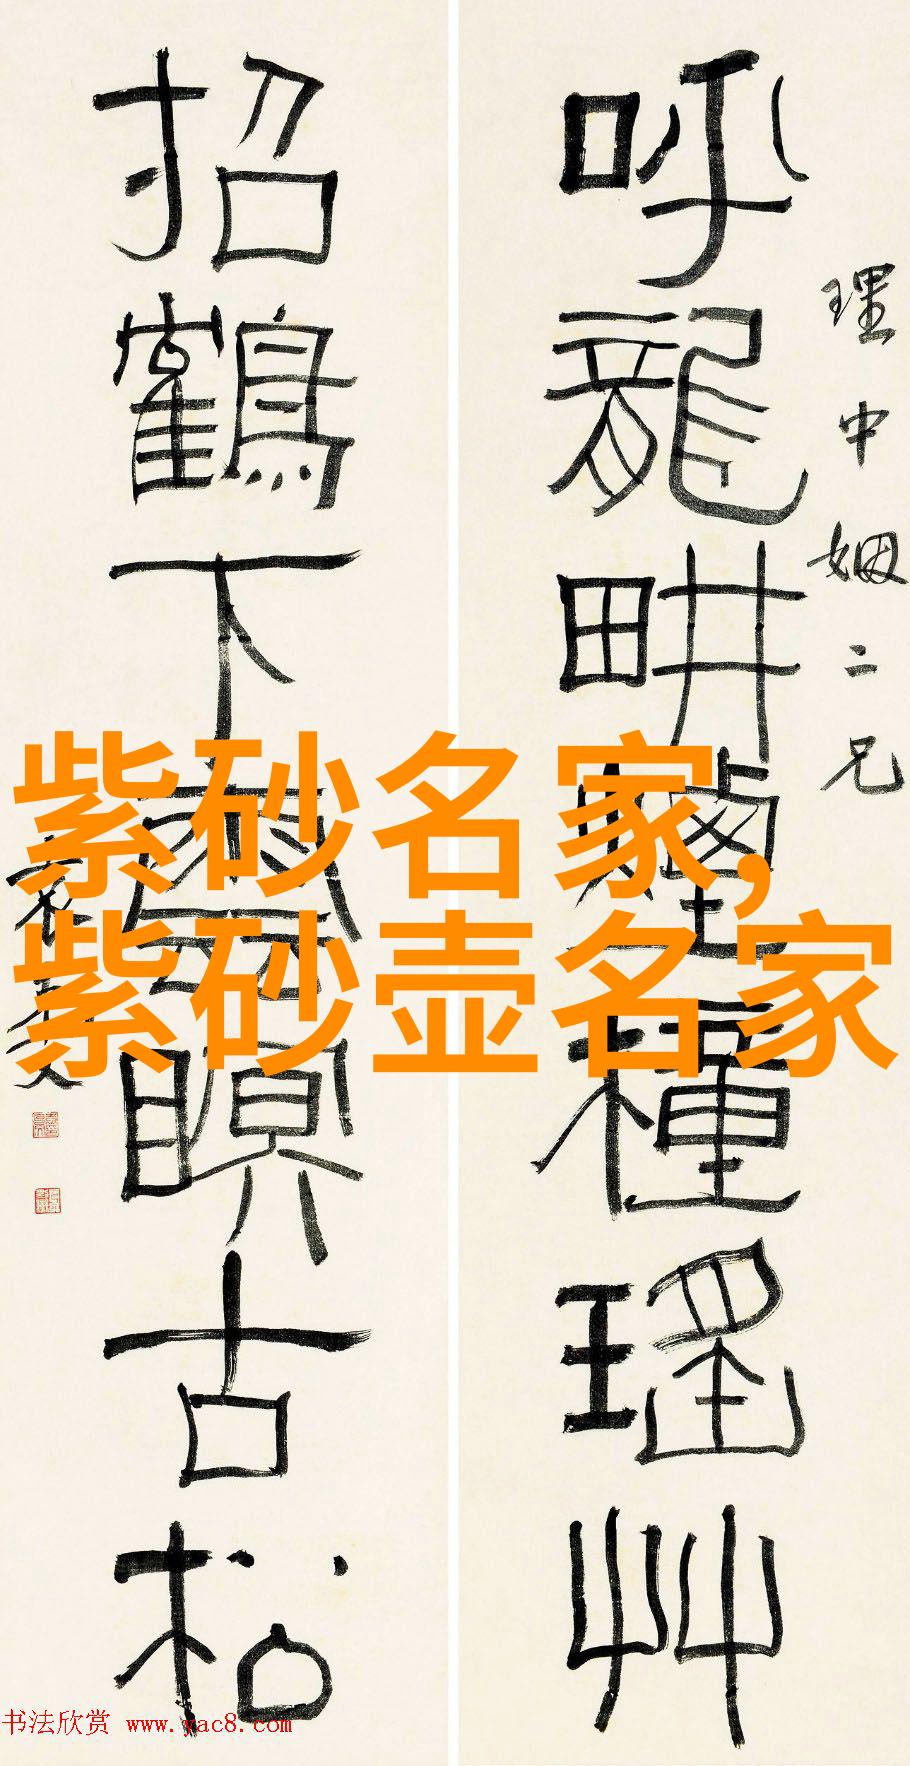 理中姻二兄
呼龍畊種瑤艸
招鶴下瞑古松
紫砂名家,
紫砂壶名家
书法欣赏 www.yac8.com